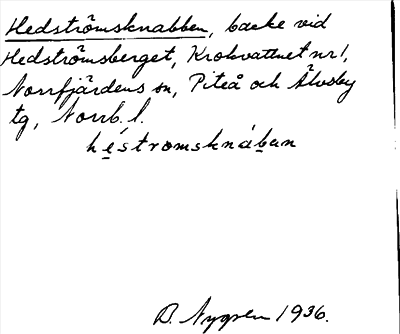 Hedströmsknabben, backe vid
Hedströmsberget, Krokvattnet nr 1,
Norrfjärdens sn, Piteå och Älvsby
tg, Norrb. l.
héstromsknában
D. Nygren 1936.